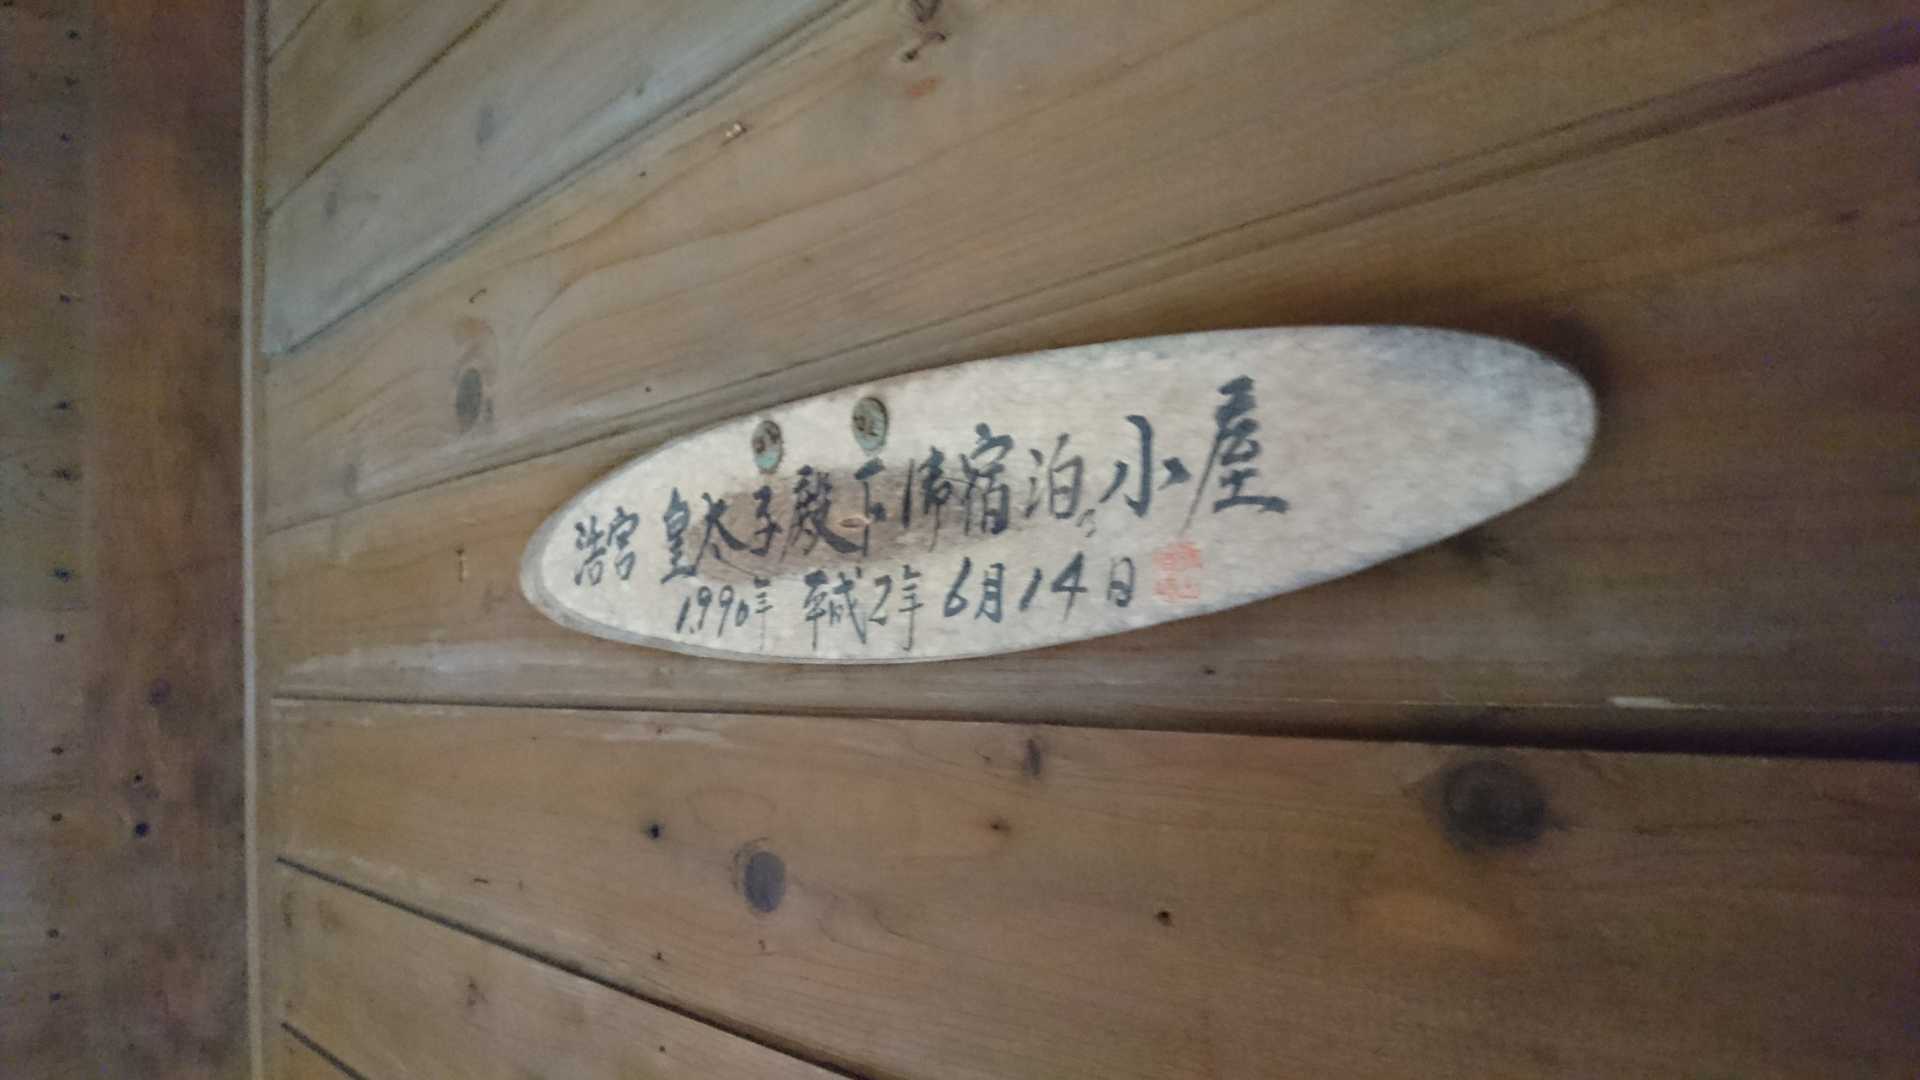 浩宮 皇太子殿下御宿泊小屋
1990年 平成2年 6月14日